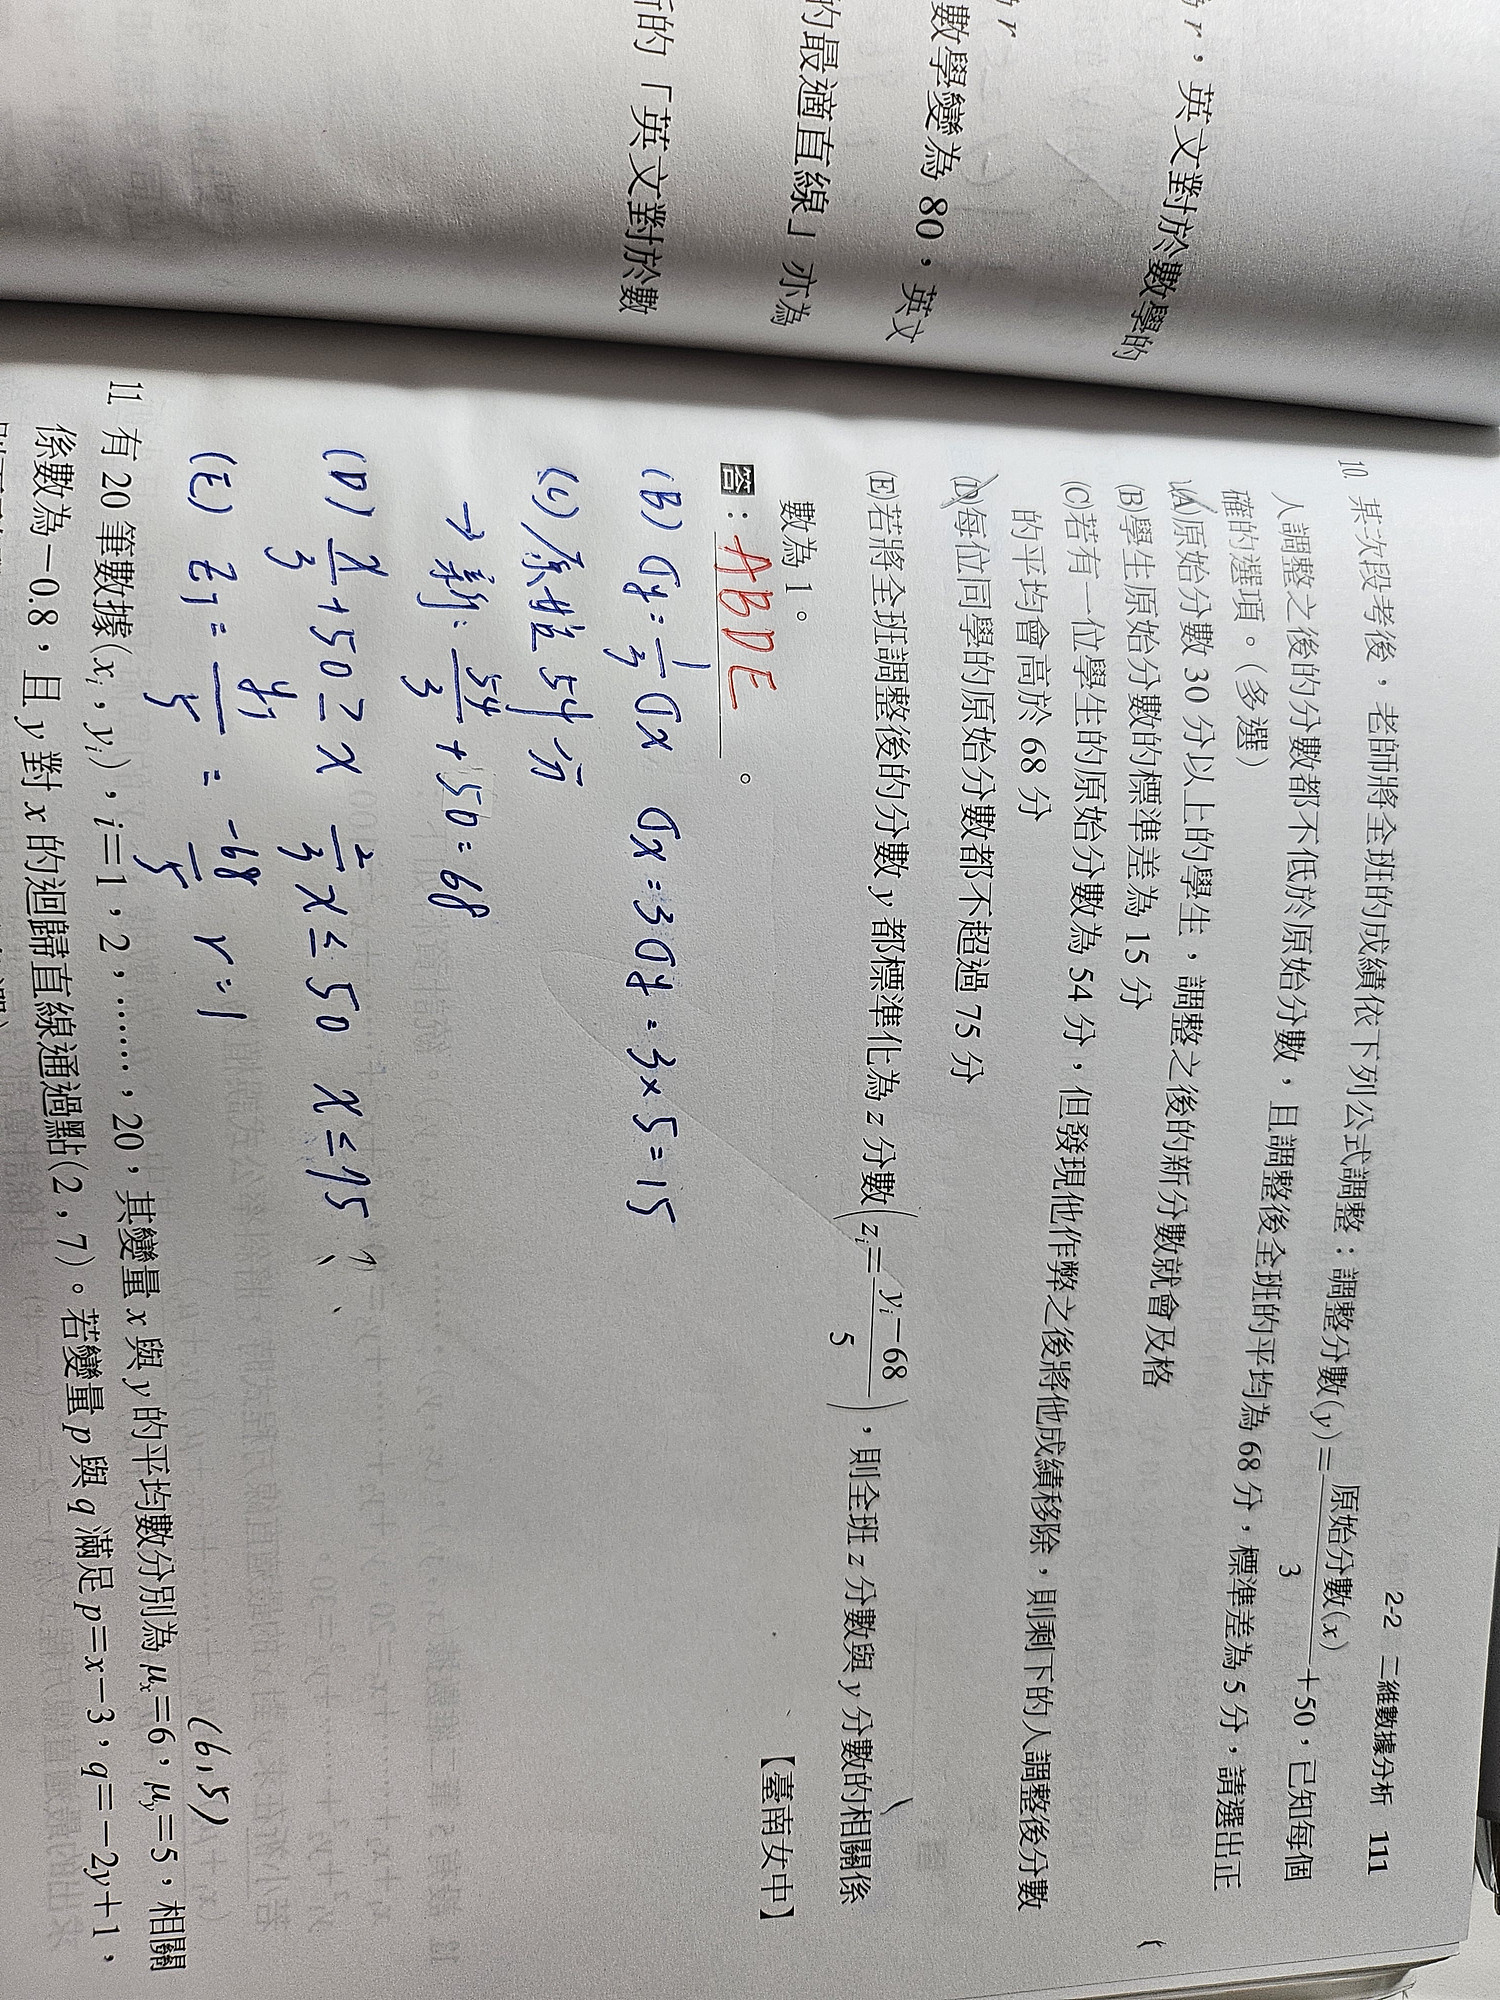 r，英文對於數學的
r
數學變為 80，英文
的最適直線」亦為
的「英文對於數
2-2 二維數據分析 111
10. 某次段考後，老師將全班的成績依下列公式調整：調整分數(y)=原始分數(x)/3+50，已知每個
人調整之後的分數都不低於原始分數，且調整後全班的平均為 68 分，標準差為 5 分，請選出正
確的選項。(多選)
(A)原始分數 30 分以上的學生，調整之後的新分數就會及格
(B)學生原始分數的標準差為 15 分
(C)若有一位學生的原始分數為 54 分，但發現他作弊之後將他成績移除，則剩下的人調整後分數
的平均會高於 68 分
(D)每位同學的原始分數都不超過 75 分
(E)若將全班調整後的分數 y 都標準化為 z 分數(zᵢ=(yᵢ−68)/5)，則全班 z 分數與 y 分數的相關係
數為 1。
【臺南女中】
答：ABDE。
(B) σy=1/3 σx σx=3σy=3×5=15
(C) 原始 54 分
→新: 54/3+50=68
(D) x/3+50≥x 2/3 x≤50 x≤75
(E) r=1
(6,5)
11. 有 20 筆數據(xᵢ，yᵢ)，i=1，2，……，20，其變量 x 與 y 的平均數分別為 μₓ=6，μᵧ=5，相關
係數為−0.8，且 y 對 x 的迴歸直線通過點(2，7)。若變量 p 與 q 滿足 p=x−3，q=−2y+1，